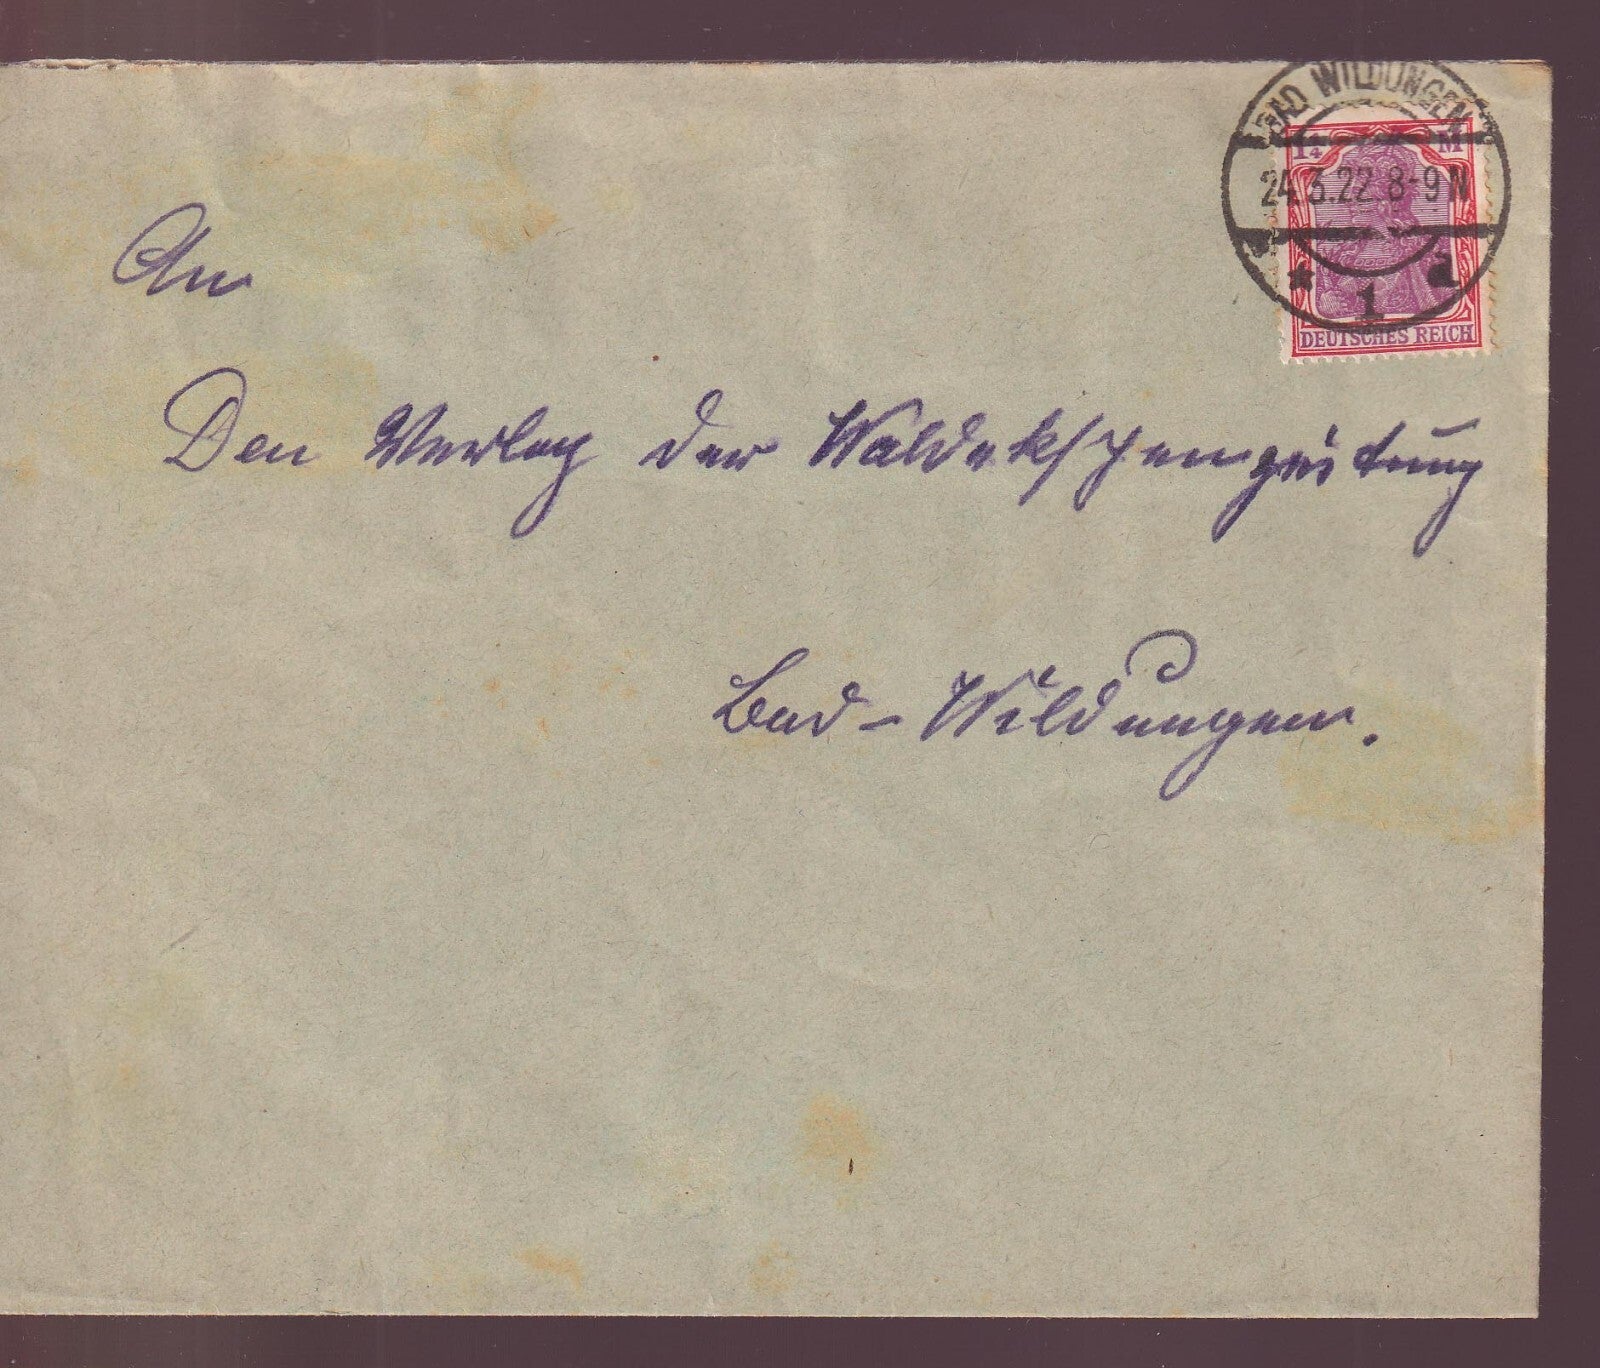 BAD WILDUNGEN
1¼ M
24.3.22 8-9 N
* 1 a
DEUTSCHES REICH
An
Den Verlag der Waldekschenzeitung
Bad-Wildungen.